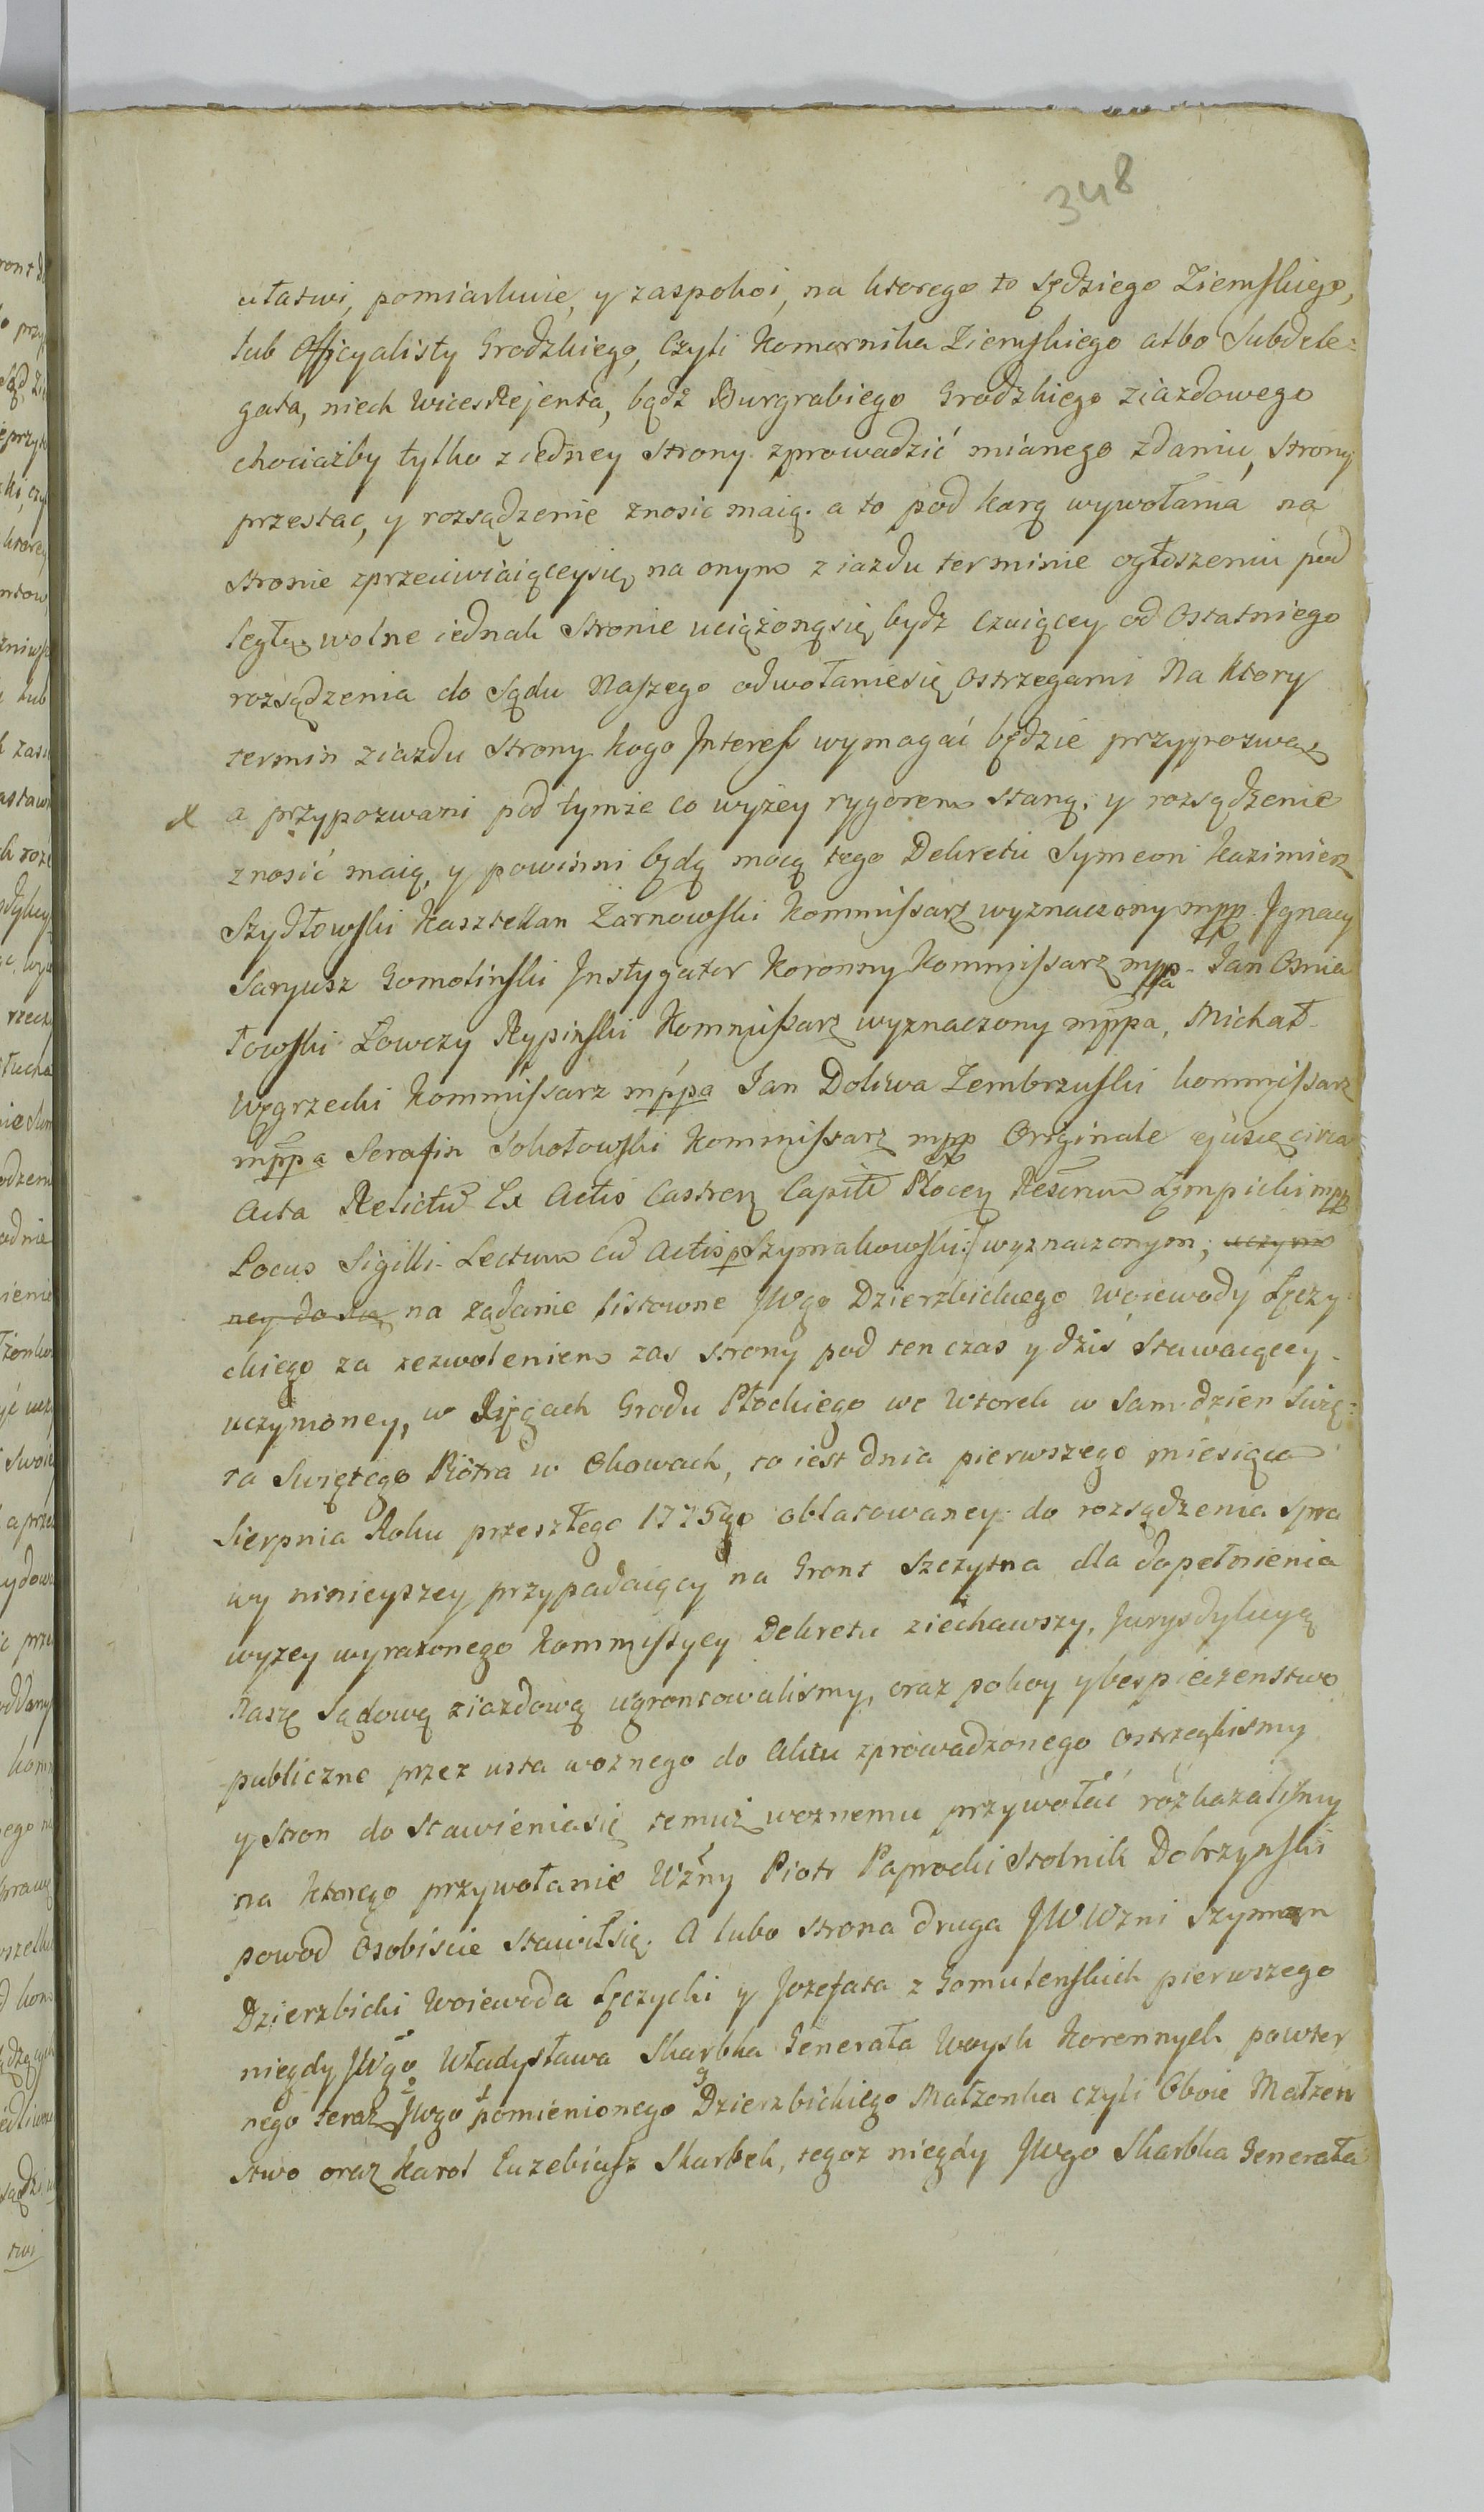 348
ułatwi, pomiarkuie, y zaspokoi, na ktorego to sędziego Ziemskiego,
lub Officyalisty Grodzkiego, Czyli Komornika Ziemskiego albo Subdele=
gata, niech WicesRejenta, bądz Burgrabiego Grodzkiego ziazdowego
chociażby tylko z iedney Strony zprowadzić mianego zdaniu, Strony
przestac, y rozsądzenie znosic maią. a to pod karą wywołania na
stronie zprzeciwiaiąceysię na onym ziazdu terminie ogłoszeniu pod
ległą, wolne iednak Stronie uciążonąsię bydz czuiącey od Ostatniego
rozsądzenia do Sądu Naszego odwołaniesię Ostrzegami Na ktory
termin ziazdu Strony kogo Interess wymagać będzie przypozwą
a przypozwani pod tymże co wyżey rygorem staną, y rozsądzenie
znosić maią, y powinni będą mocą tego Dekretu Symeon Kazimierz
Szydłowski Kasztellan Żarnowski Kommissarz wyznaczony mpp. Ignacy
Saryusz Gomoliński Instygator Koronny Kommissarz mppa. Jan Osmia
łowski Łowczy Rypiński Kommissarz wyznaczony mppa, Michał
Węgrzecki Kommissarz mppa Jan Doliwa Zembrzuski kommissarz
mppa Serafin Sokołowski Kommissarz mpp Originale ejusce circa
Acta Relictū Ex Actis Castren Capitł Płocen Łempicki mpp
Locus Sigilli. Lectum cū Actis p Szymakowski:/ wyznaczonym, uczymo
ney do na żądanie listowne JWgo Dzierzbickiego Woiewody Łęczy=
ckiego za zezwoleniem zas strony pod ten czas y dzis Stawaiącey
uczymoney, w Xięgach Grodu Płockiego we Wtorek w Sam dzien Swię=
ta Swiętego Piotra w Okowach, to iest dnia pierwszego miesiąca
Sierpnia Roku przeszłego 1775go oblatowaney do rozsądzenia spra
wy ninieyszey przypadaiącey na Gront Szczytna dla dopełnienia
wyzey wyrazonego Kommissyey Dekretu ziechawszy, Jurysdykcyą
Naszę Sądową ziazdową ugrontowalismy, oraz pokoy y bespieczenstwo
publiczne przez usta woznego do Aktu zprowadzonego ostrzeglismy
y stron do stawieniasię temuż woznemu przywołać rozkazalismy
na ktorego przywołanie Wżny Piotr Paprocki Stolnik Dobrzynski
powod Osobiscie stawiłsię. A lubo strona druga JWWzni Szymon
Dzierzbicki Woiewoda Łęczycki y Jozefata z Gomulenskich pierwszego
niegdy JWgo Władysława Skarbka Generała Woysk Koronnych powtor
nego teraz JWgo pomienionego Dzierzbickiego Małzonka czyli Oboie Małzen
stwo oraz Karol Euzebiusz Skarbek, tegoz niegdy JWgo Skarbka Generała